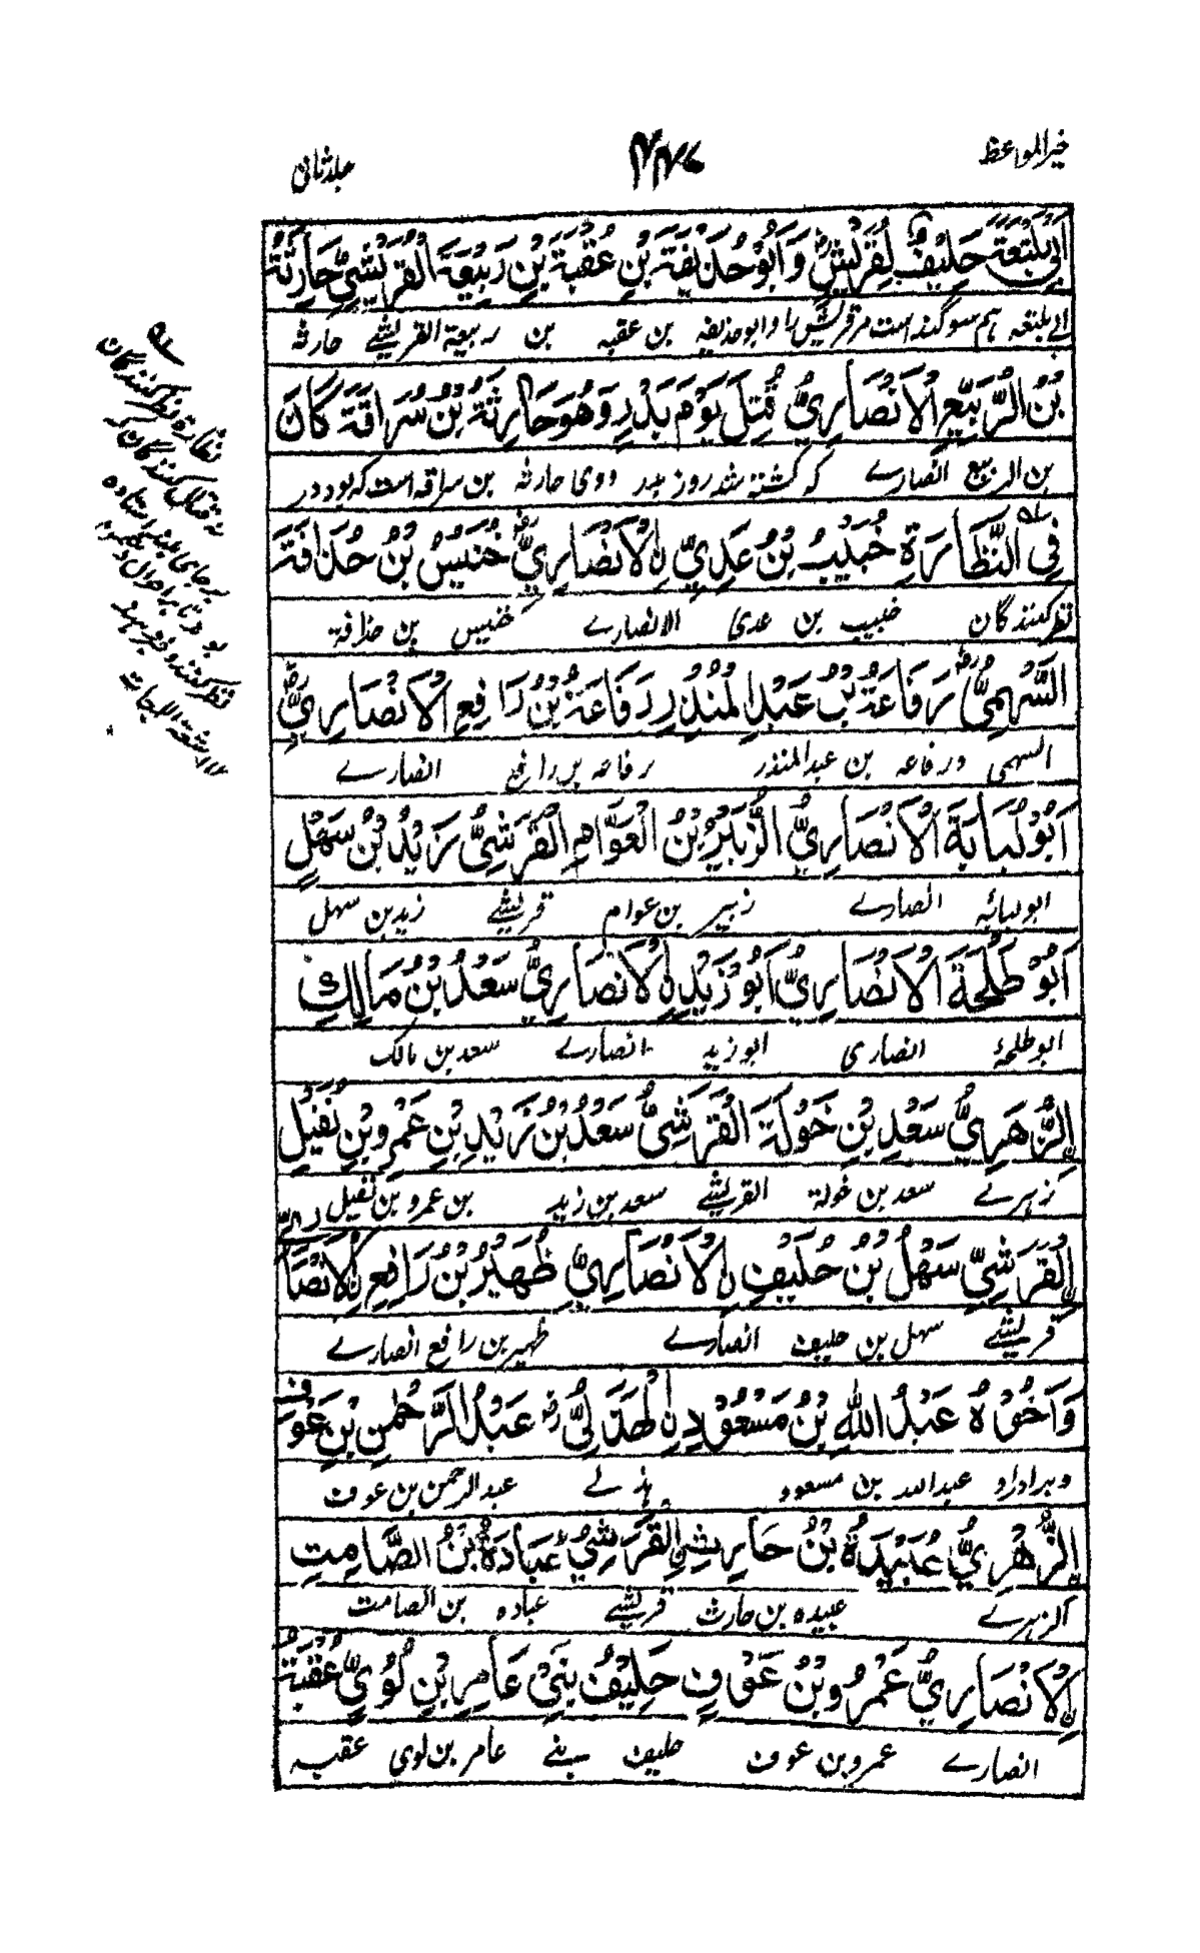 خیر المواعظ
۴۴۷
جلد ثانی
اَبِیْ بَلْتَعَةَ حَلِیْفٌ لِقُرَیْشٍ وَاَبُوْ حُذَیْفَةَ بْنِ عُقْبَةَ بْنِ رَبِیْعَةَ الْقُرَیْشِیُّ حَارِثَةُ
ابی بلتعه هم سوگند است مر قریش را و ابو حذیفه بن عقبه بن ربیعة القریشے حارثه
بْنُ الرَّبِیْعِ الْاَنْصَارِیُّ قُتِلَ یَوْمَ بَدْرٍ وَهُوَ حَارِثَةُ بْنُ سُرَاقَةَ كَانَ
بن الربیع انصارے که کشته شد روز بدر و وی حارثه بن سراقه است که بود در
فِی النَّظَّارَةِ خُبَیْبُ بْنُ عَدِیِّ ِۨالْاَنْصَارِیُّ خُنَیْسُ بْنُ حُذَافَةَ
نظر کنندگان خبیب بن عدی الانصارے خنیس بن حذافة
السَّهْمِیُّ رِفَاعَةُ بْنُ عَبْدِ الْمُنْذِرِ رِفَاعَةُ بْنُ رَافِعِ الْاَنْصَارِیُّ
السهمی و رفاعه بن عبد المنذر رفاعه بن رافع انصارے
اَبُوْ لُبَابَةَ الْاَنْصَارِیُّ الزُّبَیْرُ بْنُ الْعَوَّامِ الْقُرَشِیُّ زَیْدُ بْنُ سَهْلٍ
ابو لبابه انصارے زبیر بن عوام قریشے زید بن سهل
اَبُوْ طَلْحَةَ الْاَنْصَارِیُّ اَبُوْ زَیْدِ ِۨالْاَنْصَارِیُّ سَعْدُ بْنُ مَالِكِ
ابو طلحه انصاری ابو زید انصارے سعد بن مالک
ِۨالزُّهَرِیُّ سَعْدِ بْنِ خَوْلَةَ الْقُرَشِیُّ سَعْدُ بْنُ زَیْدِ بْنِ عَمْرِو بْنِ نُفَیْلِ
زہرے سعد بن خولة القریشے سعد بن زید بن عمرو بن نفیل
ِۨالْقُرَشِیِّ سَهْلُ بْنُ حُلَیْفِ ِۨالْاَنْصَارِیِّ ظُهَیْرُ بْنُ رَافِعِ ِۨالْاَنْصَارِیُّ
قریشے سهل بن حلیف انصارے ظهیر بن رافع انصارے
وَاَخُوْهُ عَبْدُ اللهِ بْنُ مَسْعُوْدِ ِۨالْهُذَلِیُّ عَبْدُ الرَّحْمٰنِ بْنِ عَوْفِ
و برادر او عبد الله بن مسعود هذلے عبد الرحمن بن عوف
ِۨالزُّهْرِیُّ عُبَیْدَةُ بْنُ حَارِثِ ِۨالْقُرَشِیُّ عُبَادَةُ بْنُ الصَّامِتِ
الزہرے عبیده بن حارث قریشے عباده بن الصامت
ِۨالْاَنْصَارِیُّ عَمْرُو بْنُ عَوْفٍ حَلِیْفُ بَنِیْ عَامِرِ بْنِ لُوَیٍّ عُقْبَةُ
انصارے عمرو بن عوف حلیف بنے عامر بن لوی عقبه
نظارة نظر کنندگان
نه قتال کنندگان که
بر جای بلند استاده
بود تا بر احوال
نظر کنند و خبر
اشعة اللمعات